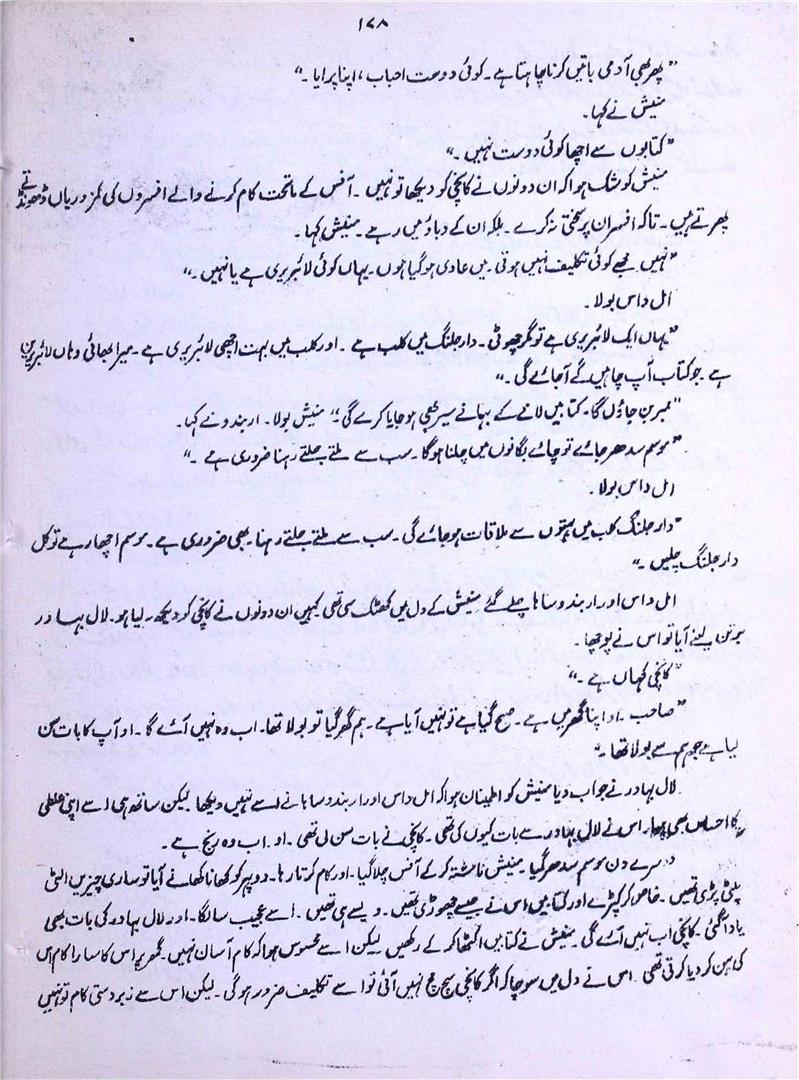 ۱۲۸
"پھر بھی آدمی باتیں کرنا چاہتا ہے۔ کوئی دوست احباب، اپنا پرایا۔"
منیش نے کہا۔
"کتابوں سے اچھا کوئی دوست نہیں۔"
منیش کو شک ہوا کہ ان دونوں نے کانچی کو دیکھا تو نہیں۔ آفس کے ماتحت کام کرنے والے افسروں کی کمزوریاں ڈھونڈتے
پھرتے ہیں۔ تاکہ افسر ان پر سختی نہ کرے۔ بلکہ ان کے دباؤ میں رہے۔ منیش کہا۔
"نہیں مجھے کوئی تکلیف نہیں ہوتی۔ میں عادی ہو گیا ہوں۔ یہاں کوئی لائبریری ہے یا نہیں۔"
امل داس بولا۔
"یہاں ایک لائبریری ہے تو مگر چھوٹی۔ دارجلنگ میں کلب ہے۔ اور کلب میں بہت اچھی لائبریری ہے۔ میرا بھائی وہاں لائبریرین
ہے۔ جو کتاب آپ چاہیں گے آجائے گی۔"
"ممبر بن جاؤں گا۔ کتابیں لانے کے بہانے سیر بھی ہو جایا کرے گی" منیش بولا۔ اربندو نے کہا۔
"موسم سدھر جائے تو چائے بگانوں میں چلنا ہوگا۔ سب سے ملتے جلتے رہنا ضروری ہے۔"
امل داس بولا۔
"دارجلنگ کلب میں بہتوں سے ملاقات ہو جائے گی۔ سب سے ملتے جلتے رہنا۔ بھی ضروری ہے۔ موسم اچھا رہے تو کل
دارجلنگ چلیں۔"
امل داس اور اربندو ساہا چلے گئے منیش کے دل میں کھٹک سی تھی کہیں ان دونوں نے کانچی کو دیکھ۔ لیا ہو۔ لال بہادر
برتن لینے آیا تو اس نے پوچھا۔
"کانچی کہاں ہے۔"
"صاحب۔ او اپنا گھر میں ہے۔ صبح گیا ہے تو نہیں آیا ہے۔ ہم گھر گیا تو بولا تھا۔ اب وہ نہیں آئے گا۔ او آپ کا بات سن
لیا ہے جو ہم سے بولا تھا۔"
لال بہادر نے جواب دیا منیش کو اطمینان ہوا کہ امل داس اور اربندو ساہا نے اسے نہیں دیکھا لیکن ساتھ ہی اسے اپنی غلطی
کا احساس بھی ہوا۔ اس نے لال بہادر سے بات کیوں کی تھی۔ کانچی نے بات سن لی تھی۔ اور اب وہ رنج ہے۔
دوسرے دن موسم سدھر گیا۔ منیش ناشتہ کر کے آفس چلا گیا۔ اور کام کرتا رہا۔ دوپہر کو کھانا کھانے آیا تو ساری چیزیں الٹی
پلٹی پڑی تھیں۔ خاص کر کپڑے اور کتابیں اس نے جیسے چھوڑی تھیں۔ ویسے ہی تھیں۔ اسے عجیب سا لگا۔ اور لال بہادر کی بات بھی
یاد آگئی۔ کانچی اب نہیں آئے گی۔ منیش نے کتابیں اکٹھا کر کے رکھیں لیکن اسے محسوس ہوا کہ کام آسان نہیں۔ گھر پر اس کا سارا کام اس
کی بہن کر دیا کرتی تھی۔ اس نے دل میں سوچا کہ اگر کانچی سچ مچ نہیں آئی تو اسے تکلیف ضرور ہوگی۔ لیکن اس سے زبردستی کام تو نہیں